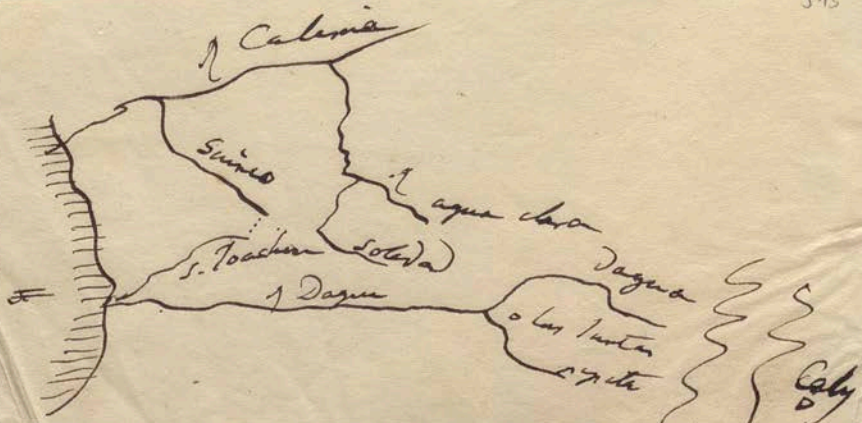 Calima
Guineo
agua clara
S. Joachim
Soledad
Dagua
Dagua
o Las Juntas
Caly